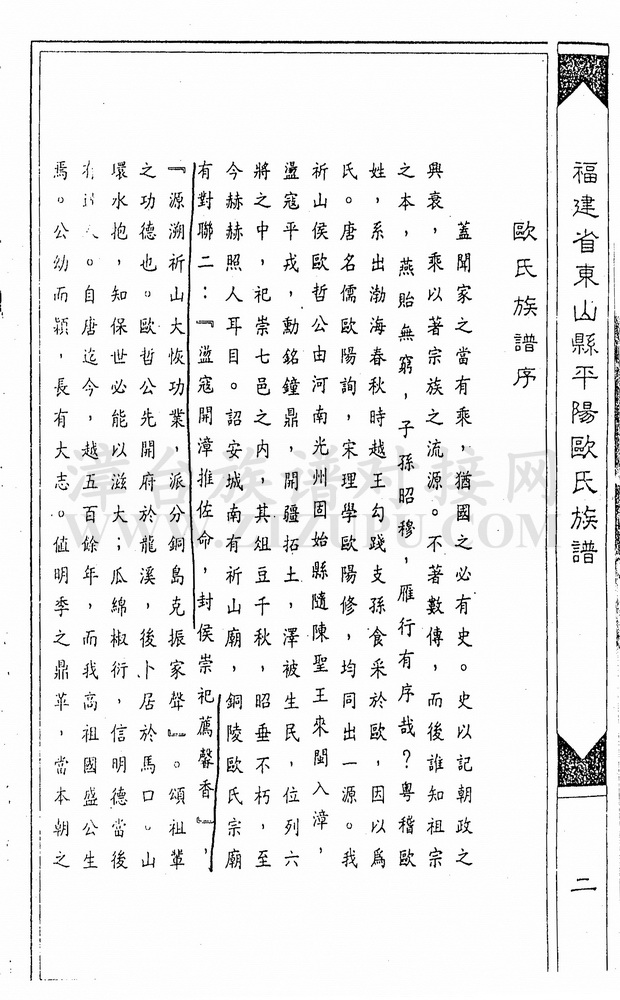 福建省東山縣平陽歐氏族譜
二
歐氏族譜序
蓋聞家之當有乘，猶國之必有史。史以記朝政之
興衰，乘以著宗族之流源。不著數傳，而後誰知祖宗
之本，燕貽無窮，子孫昭穆，雁行有序哉？粵稽歐
姓，系出渤海春秋時越王勾踐支孫食采於歐，因以為
氏。唐名儒歐陽詢，宋理學歐陽修，均同出一源。我
祈山侯歐哲公由河南光州固始縣隨陳聖王來閩入漳，
盪寇平戎，勳銘鐘鼎，開疆拓土，澤被生民，位列六
將之中，祀崇七邑之內，其俎豆千秋，昭垂不朽，至
今赫赫照人耳目。詔安城南有祈山廟，銅陵歐氏宗廟
有對聯二：『盪寇開漳推佐命，封侯崇祀薦馨香』，
『源溯祈山大恢功業，派分銅島克振家聲』。頌祖輩
之功德也。歐哲公先開府於龍溪，後卜居於馬口。山
環水抱，知保世必能以滋大；瓜綿椒衍，信明德當後
有人。自唐迄今，越五百餘年，而我高祖國盛公生
焉。公幼而穎，長有大志。值明季之鼎革，當本朝之
漳台族譜對接網
WWW.ZZZUPU.COM